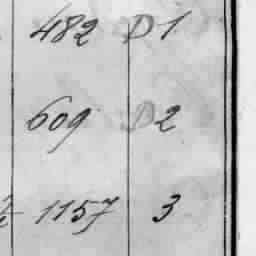 482 D 1
609 D 2
1157 3